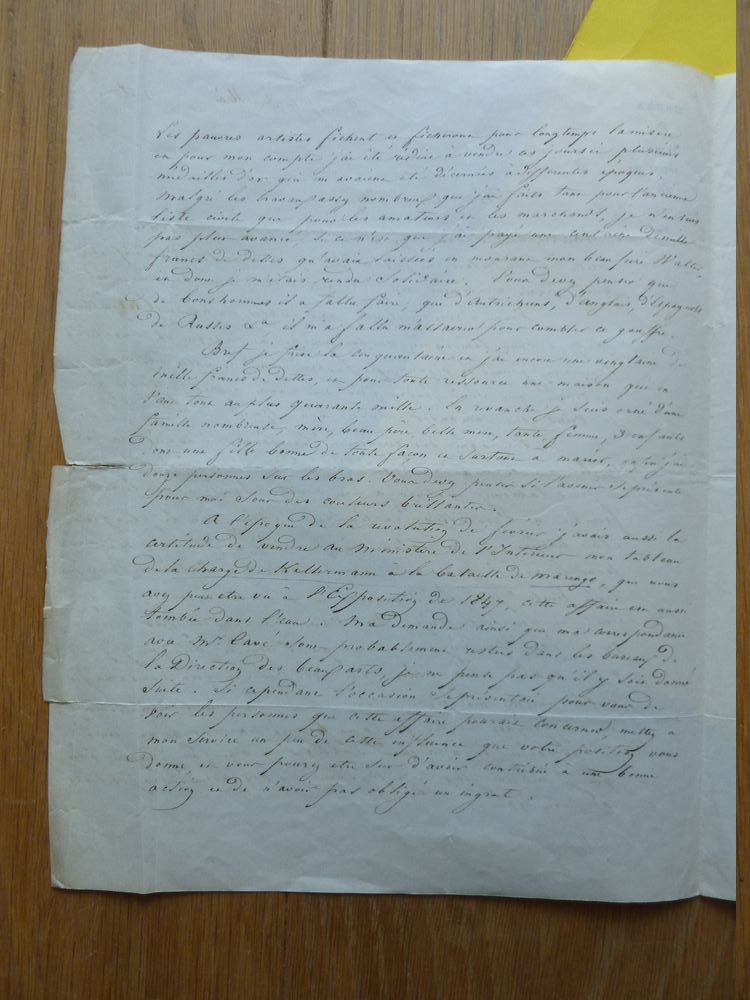 Les pauvres artistes fichent et ficheront pour longtemps la misère
et pour mon compte j'ai été réduit à vendre ces jours ci plusieurs
medailles d'or qui m'avaient été décernées à differentes époques.
Malgré les travaux assez nombreux que j'ai faits tant pour l'ancienne
liste civile que pour les amateurs et les marchands, je n'en suis
pas plus avancé, si ce n'est que j'ai payé une centaine de mille
francs de dettes qu'avait laissées en mourant mon beau frère
et dont je m'étais rendu solidaire. Vous devez penser que
de bons hommes il a fallu faire, que d'Autrichiens, d'anglais, d'Espagnols
de Russes &a il m'a fallu massacrer pour combler ce gouffre.
Bref je frise la cinquantaine et j'ai encore une vingtaine de
mille francs de dettes, et pour toute ressource une maison qui en
vaut tout au plus quarante mille. En revanche je suis orné d'une
famille nombreuse, mère, beau père belle mère, tante femme, 3 enfants
dont une fille bonne de toute façon et surtout à marier, enfin j'ai
douze personnes sur les bras. Vous devez penser si l'avenir se présente
pour moi sous des couleurs brillantes.
A l'époque de la revolution de fevrier j'avais aussi la
certitude de vendre au Ministère de l'Interieur mon tableau
de la charge de Kellermann à la bataille de Marengo, que vous
avez peut etre vu à l'Exposition de 1847, cette affaire est aussi
tombée dans l'eau. Ma demande ainsi que ma correspondance
avec Mr Cavé sont probablement restées dans les bureaux de
la Direction des beaux arts, je ne pense pas qu'il y soit donné
suite. Si cependant l'occasion se présentait pour vous de
voir les personnes que cette affaire pourrait concerner mettez à
mon service un peu de cette influence que votre position vous
donne et vous pourez etre sur d'avoir contribué à une bonne
action et de n'avoir pas obligé un ingrat.